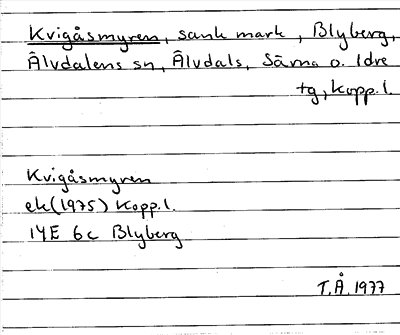 Kvigåsmyren, sank mark, Blyberg,
Älvdalens sn, Älvdals, Särna o. Idre
tg, Kopp.l.
Kvigåsmyren
ek(1975) Kopp.l.
14E 6c Blyberg
T.Å. 1977